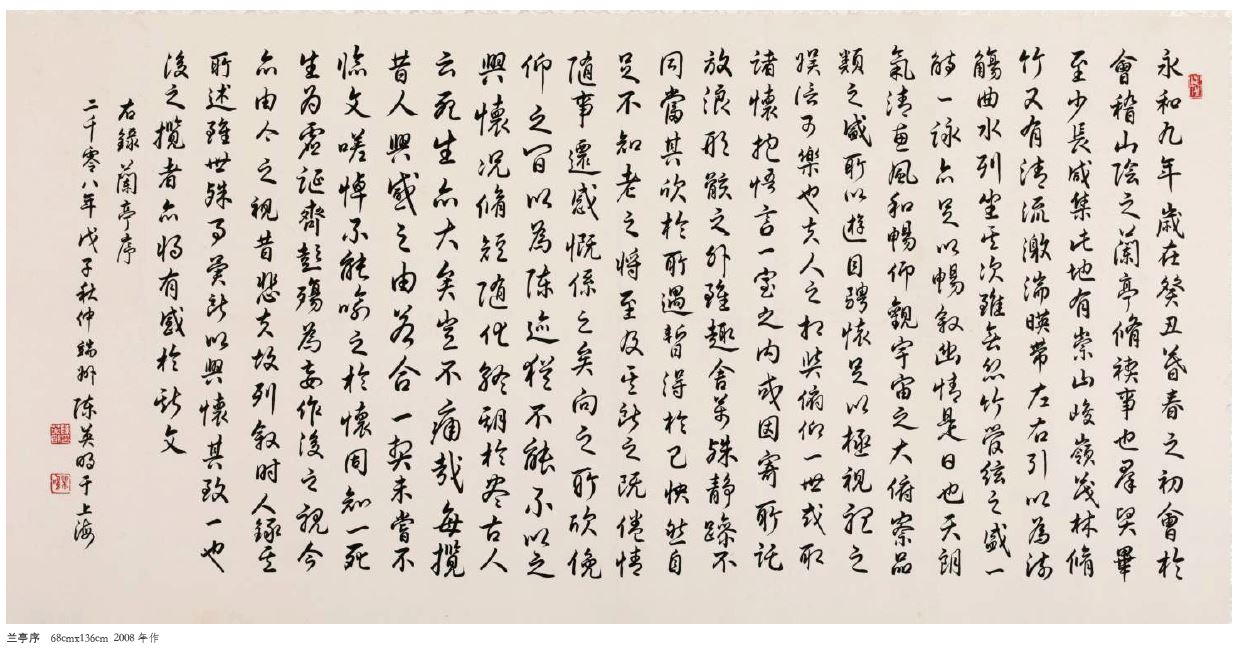 永和九年歲在癸丑暮春之初會於
會稽山陰之蘭亭脩禊事也羣賢畢
至少長咸集此地有崇山峻嶺茂林脩
竹又有清流激湍暎帶左右引以為流
觴曲水列坐其次雖無絲竹管絃之盛一
觴一詠亦足以暢敘幽情是日也天朗
氣清惠風和暢仰觀宇宙之大俯察品
類之盛所以遊目騁懷足以極視聽之
娛信可樂也夫人之相與俯仰一世或取
諸懷抱悟言一室之內或因寄所託
放浪形骸之外雖趣舍萬殊靜躁不
同當其欣於所遇暫得於己快然自
足不知老之將至及其所之既倦情
隨事遷感慨係之矣向之所欣俛
仰之間以為陳迹猶不能不以之
興懷況脩短隨化終期於盡古人
云死生亦大矣豈不痛哉每攬
昔人興感之由若合一契未嘗不
臨文嗟悼不能喻之於懷固知一死
生為虛誕齊彭殤為妄作後之視今
亦由今之視昔悲夫故列敘時人錄其
所述雖世殊事異所以興懷其致一也
後之攬者亦將有感於斯文
右錄蘭亭序
二千零八年戊子秋仲端州陳英明于上海
兰亭序 68cmx136cm 2008 年作